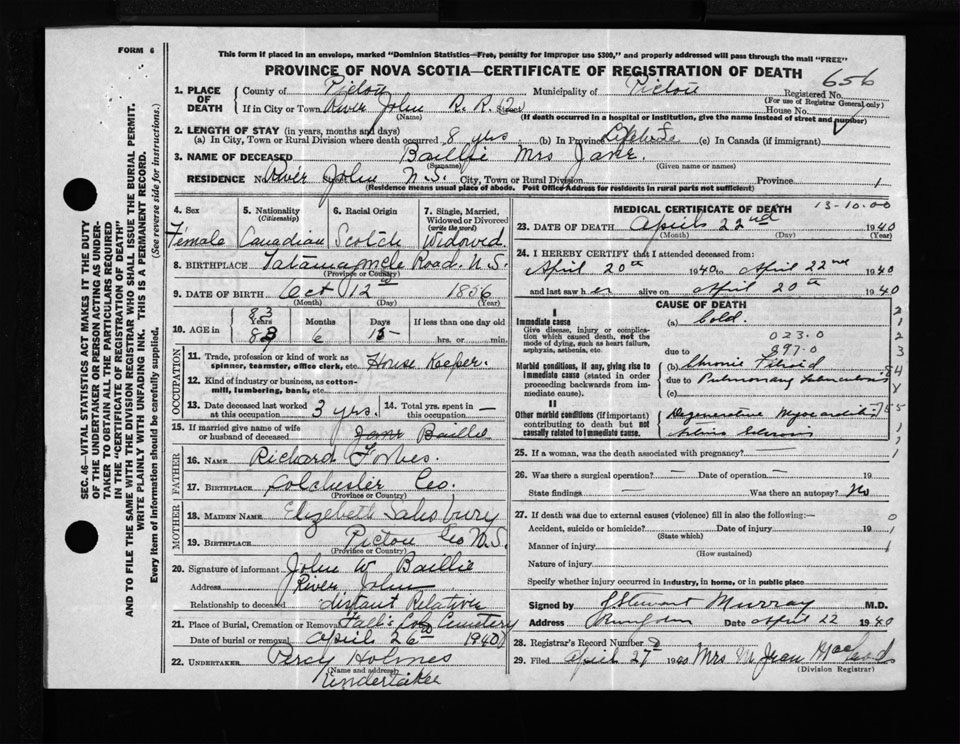 FORM 6
This form if placed in an envelope, marked "Dominion Statistics—Free, penalty for improper use $300," and properly addressed will pass through the mail "FREE"
PROVINCE OF NOVA SCOTIA—CERTIFICATE OF REGISTRATION OF DEATH
656
1. PLACE OF DEATH
County of Pictou Municipality of Pictou Registered No.
(For use of Registrar General only)
If in City or Town River John R. R. 2 (Name) House No.
(If death occurred in a hospital or institution, give the name instead of street and number)
2. LENGTH OF STAY (in years, months and days)
(a) In City, Town or Rural Division where death occurred 8 yrs (b) In Province Life (c) In Canada (if immigrant)
3. NAME OF DECEASED Baillie Mrs Jane.
(Surname) (Given name or names)
RESIDENCE No. River John N.S. City, Town or Rural Division Province 1
(Residence means usual place of abode. Post Office Address for residents in rural parts not sufficient)
4. Sex
Female
5. Nationality (Citizenship)
Canadian
6. Racial Origin
Scotch
7. Single, Married, Widowed or Divorced (write the word)
Widowed
8. BIRTHPLACE Road. N.S.
(Province or Country)
9. DATE OF BIRTH Oct 12 1856
(Month) (Day) (Year)
10. AGE in
83
Years Months Days If less than one day old
83 6 hrs. or min.
OCCUPATION
11. Trade, profession or kind of work as spinner, teamster, office clerk, etc. House Keeper.
12. Kind of industry or business, as cotton-mill, lumbering, bank, etc.
13. Date deceased last worked at this occupation 3 yrs. 14. Total yrs. spent in this occupation —
15. If married give name of wife or husband of deceased Jane Baillie
FATHER
16. Name Richard Forbes.
17. Birthplace Colchester Co.
(Province or Country)
MOTHER
18. Maiden Name Elizabeth Salisbury
19. Birthplace Pictou Co N.S.
(Province or Country)
20. Signature of informant John W Baillie
Address River John
Relationship to deceased distant Relative
21. Place of Burial, Cremation or Removal Cemetery
Date of burial or removal April 26 1940
22. UNDERTAKER Percy Holmes
(Name and address)
Undertaker
MEDICAL CERTIFICATE OF DEATH 13-10.00
23. DATE OF DEATH April 22nd 1940
(Month) (Day) (Year)
24. I HEREBY CERTIFY that I attended deceased from:
April 20th 1940 to April 22nd 1940
and last saw her alive on April 20th 1940
CAUSE OF DEATH
I
Immediate cause
Give disease, injury or complication which caused death, not the mode of dying, such as heart failure, asphyxia, asthenia, etc.
(a) Cold.
023.0
due to 897.0
Morbid conditions, if any, giving rise to immediate cause (stated in order proceeding backwards from immediate cause).
(b) Chronic Fibroid
due to Pulmonary Tuberculosis
(c)
II
Other morbid conditions (if important) contributing to death but not causally related to immediate cause.
Degenerative Myocarditis
25. If a woman, was the death associated with pregnancy? —
26. Was there a surgical operation? — Date of operation — 19
State findings — Was there an autopsy? No
27. If death was due to external causes (violence) fill in also the following:—
Accident, suicide or homicide? Date of injury 19
(State which)
Manner of injury
(How sustained)
Nature of injury
Specify whether injury occurred in industry, in home, or in public place
Signed by J Stewart Murray M.D.
Address Date April 22 1940
28. Registrar's Record Number
29. Filed April 27 1940 Mrs
(Division Registrar)
SEC. 46—VITAL STATISTICS ACT MAKES IT THE DUTY
OF THE UNDERTAKER OR PERSON ACTING AS UNDER-
TAKER TO OBTAIN ALL THE PARTICULARS REQUIRED
IN THE "CERTIFICATE OF REGISTRATION OF DEATH"
AND TO FILE THE SAME WITH THE DIVISION REGISTRAR WHO SHALL ISSUE THE BURIAL PERMIT.
WRITE PLAINLY WITH UNFADING INK. THIS IS A PERMANENT RECORD.
Every item of information should be carefully supplied. (See reverse side for instructions.)